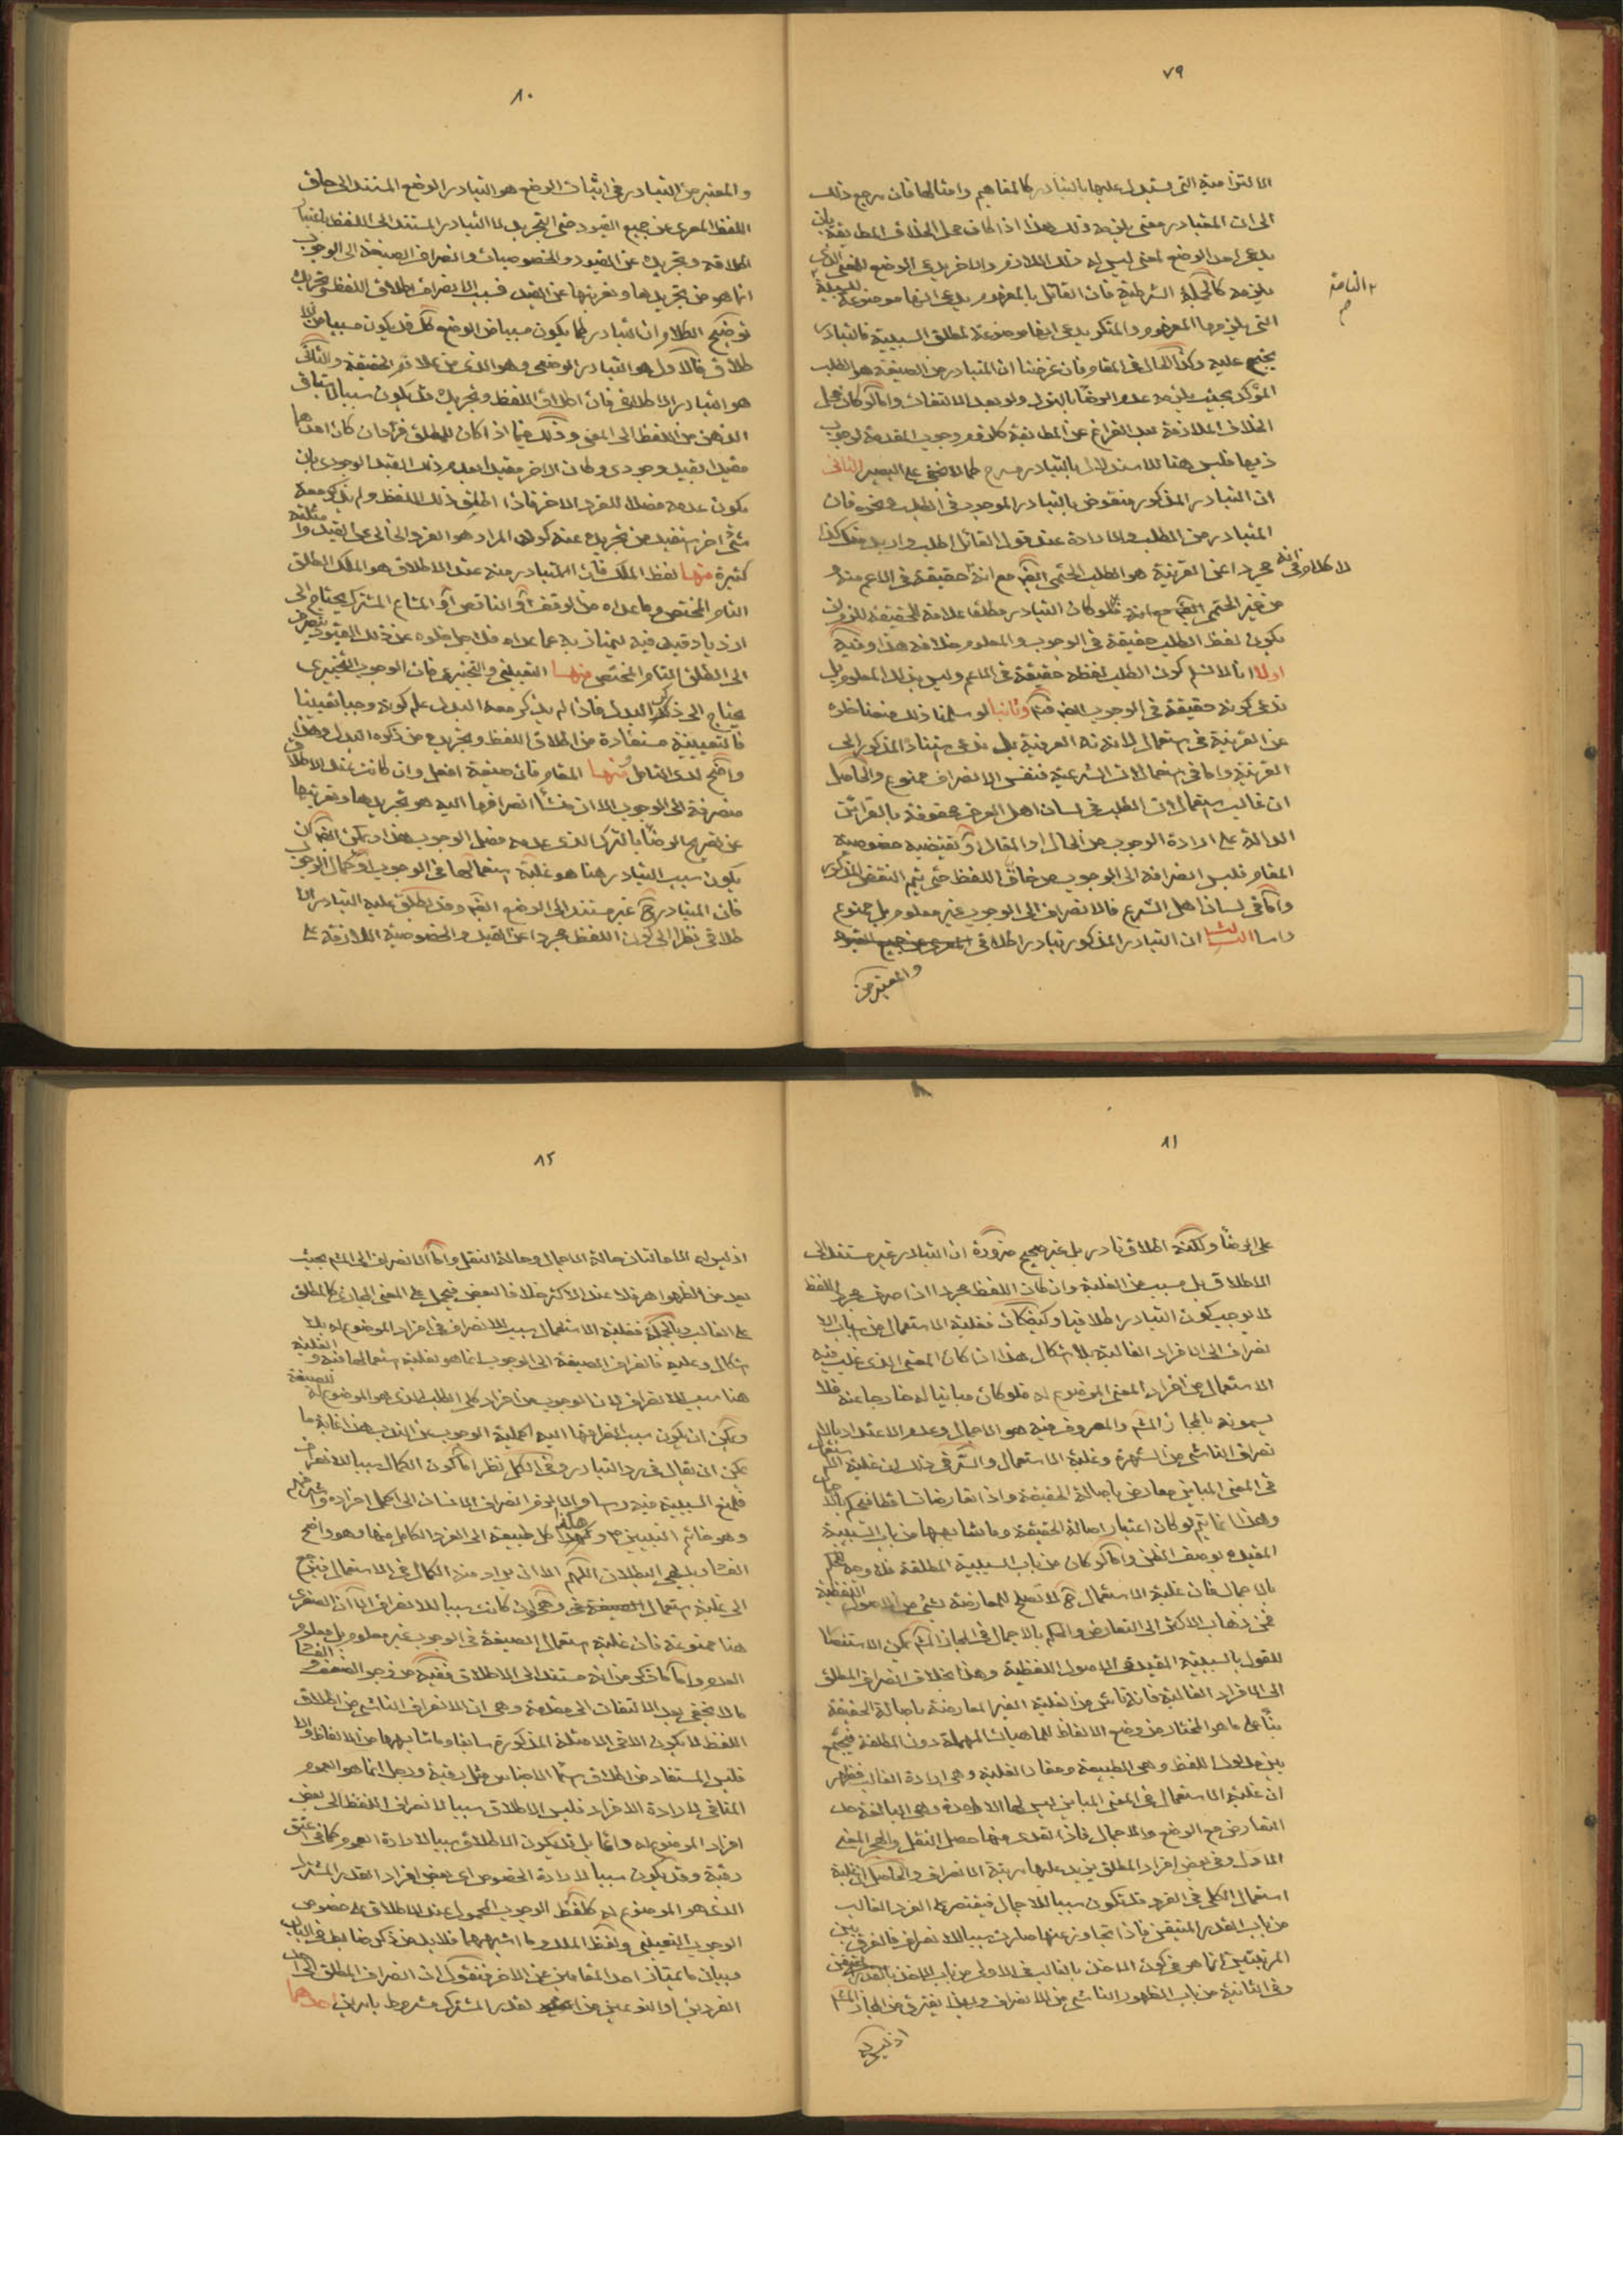 ٧٩
الالتزامية التى يستدل عليها بالتبادر كالمفاهيم وامثالها فان مرجع ذلك
الى ان المتبادر معنى يلزمه ذلك هذا اذا كان محل الخلاف المطابقة بان
يدعى احد الوضع لمعنى ليس له ذلك اللازم والاخر يدعى الوضع للمعنى الذى
يلزمه كالجملة الشرطية فان القائل بالمفهوم يدعى انها موضوعة للسببية
التى يلزمها المفهوم والمنكر يدعى انها موضوعة لمطلق السببية فالتبادر
حجة عليه وكذا الحال فى المقام فان غرضنا ان المتبادر من الصيغة هو الطلب
المؤكد بحيث يلزمه عدم الرضا بالترك ولو بعد الالتفات واما لو كان محل
الخلاف الملازمة بعد الفراغ عن المطابقة كلازم وجوب المقدمة لوجوب
ذيها فليس هنا للاستدلال بالتبادر مسرح كما لا يخفى على البصير الثانى
ان التبادر المذكور منقوض بالتبادر الموجود فى الطلب ونحوه فان
المتبادر من الطلب والارادة عند قول القائل اطلب واريد منك كذا
مجردا عن القرينة هو الطلب الحتمى ايضا مع انه حقيقة فى الاعم منه و
من غير الحتم ايضا فلو كان التبادر مطلقا علامة للحقيقة للزم ان
يكون لفظ الطلب حقيقة فى الوجوب والمعلوم خلافه هذا وفيه
اولا انا لا نسلم كون الطلب لفظه حقيقة فى الاعم وليس بذلك المعلوم بل
ندعى كونه حقيقة فى الوجوب ايضا وثانيا لو سلمنا ذلك منعنا خلوه
عن القرينة فى استعمالاته العرفية بل ندعى استناد المذكور الى
القرينة واما فى استعمالات الشرعية فنفس الانصراف ممنوع والحاصل
ان غالب استعمالات الطلب فى لسان اهل العرف محفوفة بالقرائن
الدالة على ارادة الوجوب من الحال او المقال او تقتضيه خصوصية
المقام فليس انصرافه الى الوجوب من حاق اللفظ حتى يتم النقض المذكور
واما فى لسان اهل الشرع فالانصراف الى الوجوب غير معلوم بل ممنوع
واما الثالث ان التبادر المذكور تبادر اطلاقى
والمعتبر من
٨٠
والمعتبر من التبادر فى اثبات الوضع هو التبادر الوضع المستند الى حاق
اللفظ المعرى عن جميع القيود حتى التجريد لا التبادر المستند الى اللفظ باعتبار
اطلاقه وتجريده عن القيود والخصوصيات وانصراف الصيغة الى الوجوب
انما هو من تجريدها وتعريتها عن القيد فسبب الانصراف اطلاق اللفظ وتجريده
توضيح الكلام ان التبادر كما يكون مسببا من الوضع كك قد يكون مسببا من الا
طلاق فالاول هو التبادر الوضعى وهو الذى من علائم الحقيقة والثانى
هو التبادر الاطلاقى فان اطلاق اللفظ وتجريده قد يكون سببا لاستباق
الذهن من اللفظ الى المعنى وذلك فيما اذا كان للمطلق فردان كان احدهما
مقيدا بقيد وجودى وكان الاخر مقيدا بعدم ذلك القيد الوجودى بان
يكون عدمه فصلا للفرد الاخر فاذا اطلق ذلك اللفظ ولم يذكر معه
شئ اخر استفيد من تجريده عنه كون المراد هو الفرد الخالى عن القيد وامثلته
كثيرة منها لفظ الملك فان المتبادر منه عند الاطلاق هو الملك المطلق
التام المختص وما عداه من الوقف او الناقص او المشاع المشترك يحتاج الى
ازدياد قيد فيه ليمتاز به عما عداه فلذا خلوه عن ذلك القيود ينصرف
الى المطلق التام المختص ومنها التعيينى والتخييرى فان الوجوب التخييرى
يحتاج الى ذكر البدل فاذا لم يذكر معه البدل علم كونه واجبا تعيينا
فالتعيينية مستفادة من اطلاق اللفظ وتجريده من ذكره البدل وهذا
واضح لدى التامل ومنها المقام فان صيغة افعل وان كانت عند الاطلاق
منصرفة الى الوجوب الا ان منشأ انصرافها اليه هو تجريدها وتعريتها
عن تصريح الرضا بالترك الذى عدمه فصل الوجوب هذا ويمكن ايضا ان
يكون سبب التبادر هنا هو غلبة استعمالها فى الوجوب او كمال الوجوب
فان المتبادر ح غير مستند الى الوضع ايضا وقد يطلق عليه التبادر الا
طلاقى نظرا الى كون اللفظ مجردا عن القيد والخصوصية اللازمة على
٨١
على ايضا ولكنه اطلاق نادر بل غير صحيح ضرورة ان التبادر غير مستند الى
الاطلاق بل مسبب من الغلبة وان كان اللفظ مجردا اذ صرف مجرد اللفظ
لا يوجب كون التبادر اطلاقيا وكيف كان فغلبة الاستعمال من اسباب الا
نصراف الى الافراد الغالبة بلا اشكال هذا اذا كان المعنى الذى غلب فيه
الاستعمال من افراد المعنى الموضوع له فلو كان مباينا له خارجا عنه فلا
يسمونه بالمجاز المشهور والمعروف فيه هو الاجمال وعدم الاعتداد بالا
نصراف الناشى من الشهرة وغلبة الاستعمال والسر فى ذلك ان غلبة الاستعمال
فى المعنى المباين معارض باصالة الحقيقة واذا تعارضا تساقطا فيحكم بالاجمال
وهذا انما يتم لو كان اعتبار اصالة الحقيقة وما شابهها من باب السببية
المقيدة بوصف الظن واما لو كان من باب السببية المطلقة فلا وجه للحكم
بالاجمال فان غلبة الاستعمال ح لا تصلح للمعارضة بشئ من الاصول اللفظية
فمن ذهاب الاكثر الى التعارض والحكم بالاجمال فى المجاز المشهور يمكن الاستظهار
للقول بالسببية المقيدة فى الاصول اللفظية وهذا بخلاف انصراف المطلق
الى الافراد الغالبة فانه ناشى من الغلبة الغير المعارضة باصالة الحقيقة
بناء على ما هو المختار من وضع الالفاظ للماهيات المهملة دون المطلقة فيجمع
بين مدلول اللفظ وهى الطبيعة ومفاد الغلبة وهى ارادة الغالب فظهر
ان غلبة الاستعمال فى المعنى المباين ليس لها الا درجة وهى البالغة حد
التعارض مع الوضع والاجمال فاذا تعدى منها حصل النقل وهجر المعنى
الاول وفى بعض افراد المطلق يزيد عليها مرتبة الانصراف والحاصل ان غلبة
استعمال الكلى فى الفرد قد تكون سببا للاجمال فيقتصر على الفرد الغالب
من باب القدر المتيقن فاذا تجاوز عنها صارت سببا للانصراف فالفرق بين
المرتبتين انما هو فى كون الاخذ بالغالب فى الاولى من باب الاخذ بالقدر المتيقن
وفى الثانية من باب الظهور الناشى من الانصراف وبهذا يفترق من المجاز المشهور
اذ ليس له
٨٢
اذ ليس له الا حالتان حالة الاجمال وحالة النقل واما الانصراف الى المشهور بحيث
يعد من الظواهر فلا عند الاكثر خلافا لبعض فيحمل على المعنى المجازى كالمطلق
على الغالب وبالجملة فغلبة الاستعمال سبب الانصراف فى افراد الموضوع له بلا
اشكال وعليه فانصراف الصيغة الى الوجوب انما هو لغلبة استعمالها فيه والغلبة
هنا سبب للانصراف لان الوجوب من افراد كلى الطلب الذى هو الموضوع له للصيغة
ويمكن ان يكون سبب انصرافها اليه اكملية الوجوب من الندب هذا غاية ما
يمكن ان يقال فى رد التبادر وفى الكل نظر اما كون الكمال سببا للانصراف
فلمنع السببية فيه راسا والا لزم انصراف الانسان الى اكمل افراده واشرفهم
وهو خاتم النبيين ص وهكذا كل طبيعة الى الفرد الكامل منها وهو واضح
الفساد بديهى البطلان اللهم الا ان يراد منه الكمال فى الاستعمال فيرجع
الى غلبة استعمال وهى وان كانت سببا للانصراف الا ان الصغرى
هنا ممنوعة فان غلبة استعمال الصيغة فى الوجوب غير معلوم بل معلوم
العدم واما ما ذكر من انه مستند الى الاطلاق ففيه من وجوه الضعف والفساد
ما لا يخفى بعد الالتفات الى مقدمة وهى ان الانصراف الناشى من اطلاق
اللفظ لا يكون الا فى الامثلة المذكورة سابقا وما شابهها من الالفاظ والا
فليس المستفاد من اطلاق اسماء الاجناس مثل رقبة ورجل انما هو العموم
المنافى لارادة الافراد فليس الاطلاق سببا لانصراف اللفظ الى بعض
افراد الموضوع له دائما بل قد يكون الاطلاق سببا لارادة العموم كما فى اعتق
رقبة وقد يكون سببا لارادة الخصوص اى بعض افراد القدر المشترك
الذى هو الموضوع له كلفظ الوجوب المحمول عند الاطلاق على خصوص
الوجوب التعيينى ولفظ الملك وما اشبههما فلابد من ذكر ضابط فى الباب
وبيان ما يمتاز احد المقامين عن الاخر فنقول ان انصراف المطلق الى احد
الفردين او النوعين من القدر المشترك مشروط بامرين احدهما